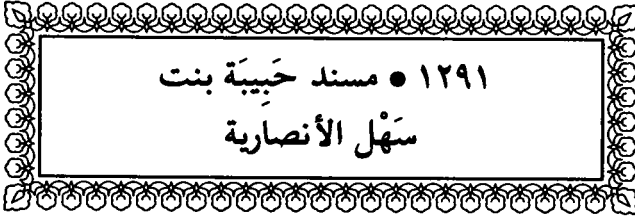 ١٢٩١ ● مسند حَبِيبَة بنت
سَهْل الأنصارية